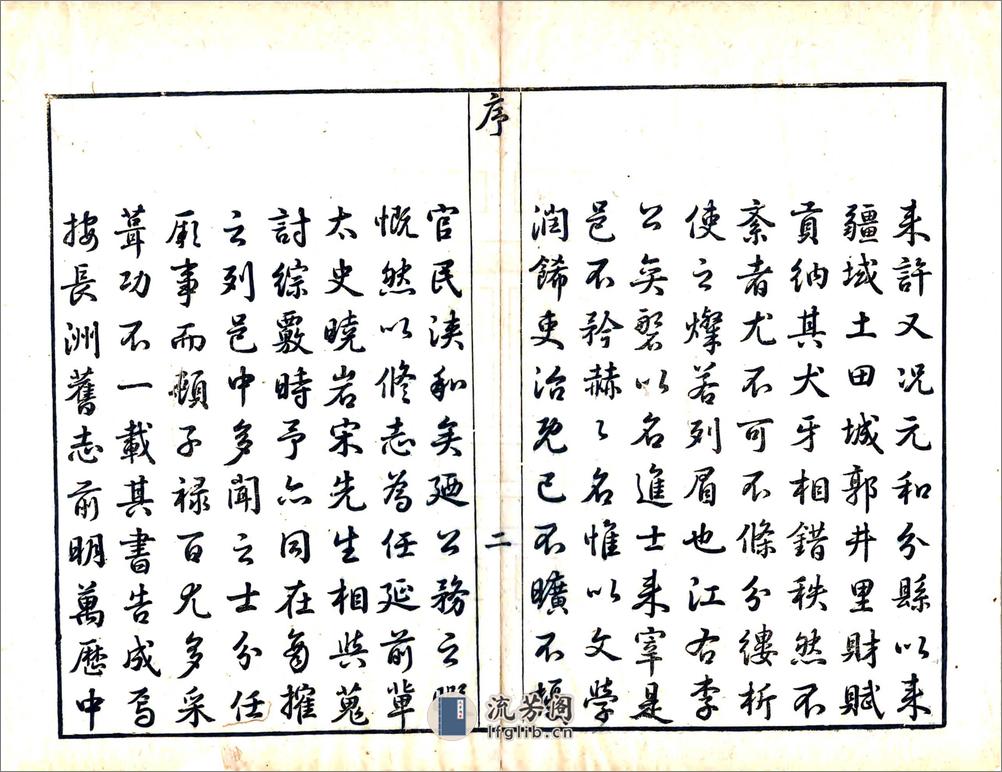 来許又况元和分縣以来
疆域土田城郭井里財賦
貢納其犬牙相錯秩然不
紊者尤不可不條分縷析
使之燦若列眉也江右李
公奐磬以名進士来宰是
邑不矜赫〻名惟以文學
潤餙吏治既已不曠不
序
二
官民浹和矣廼公務之暇
慨然以修志為任延前輩
太史曉岩宋先生相與蒐
討綜覈時予亦同在每搉
之列邑中多聞之士分任
厥事而頔子祿百尤多采
葺功不一載其書告成焉
按長洲舊志前明萬歷中
流芳阁
lfglib.cn